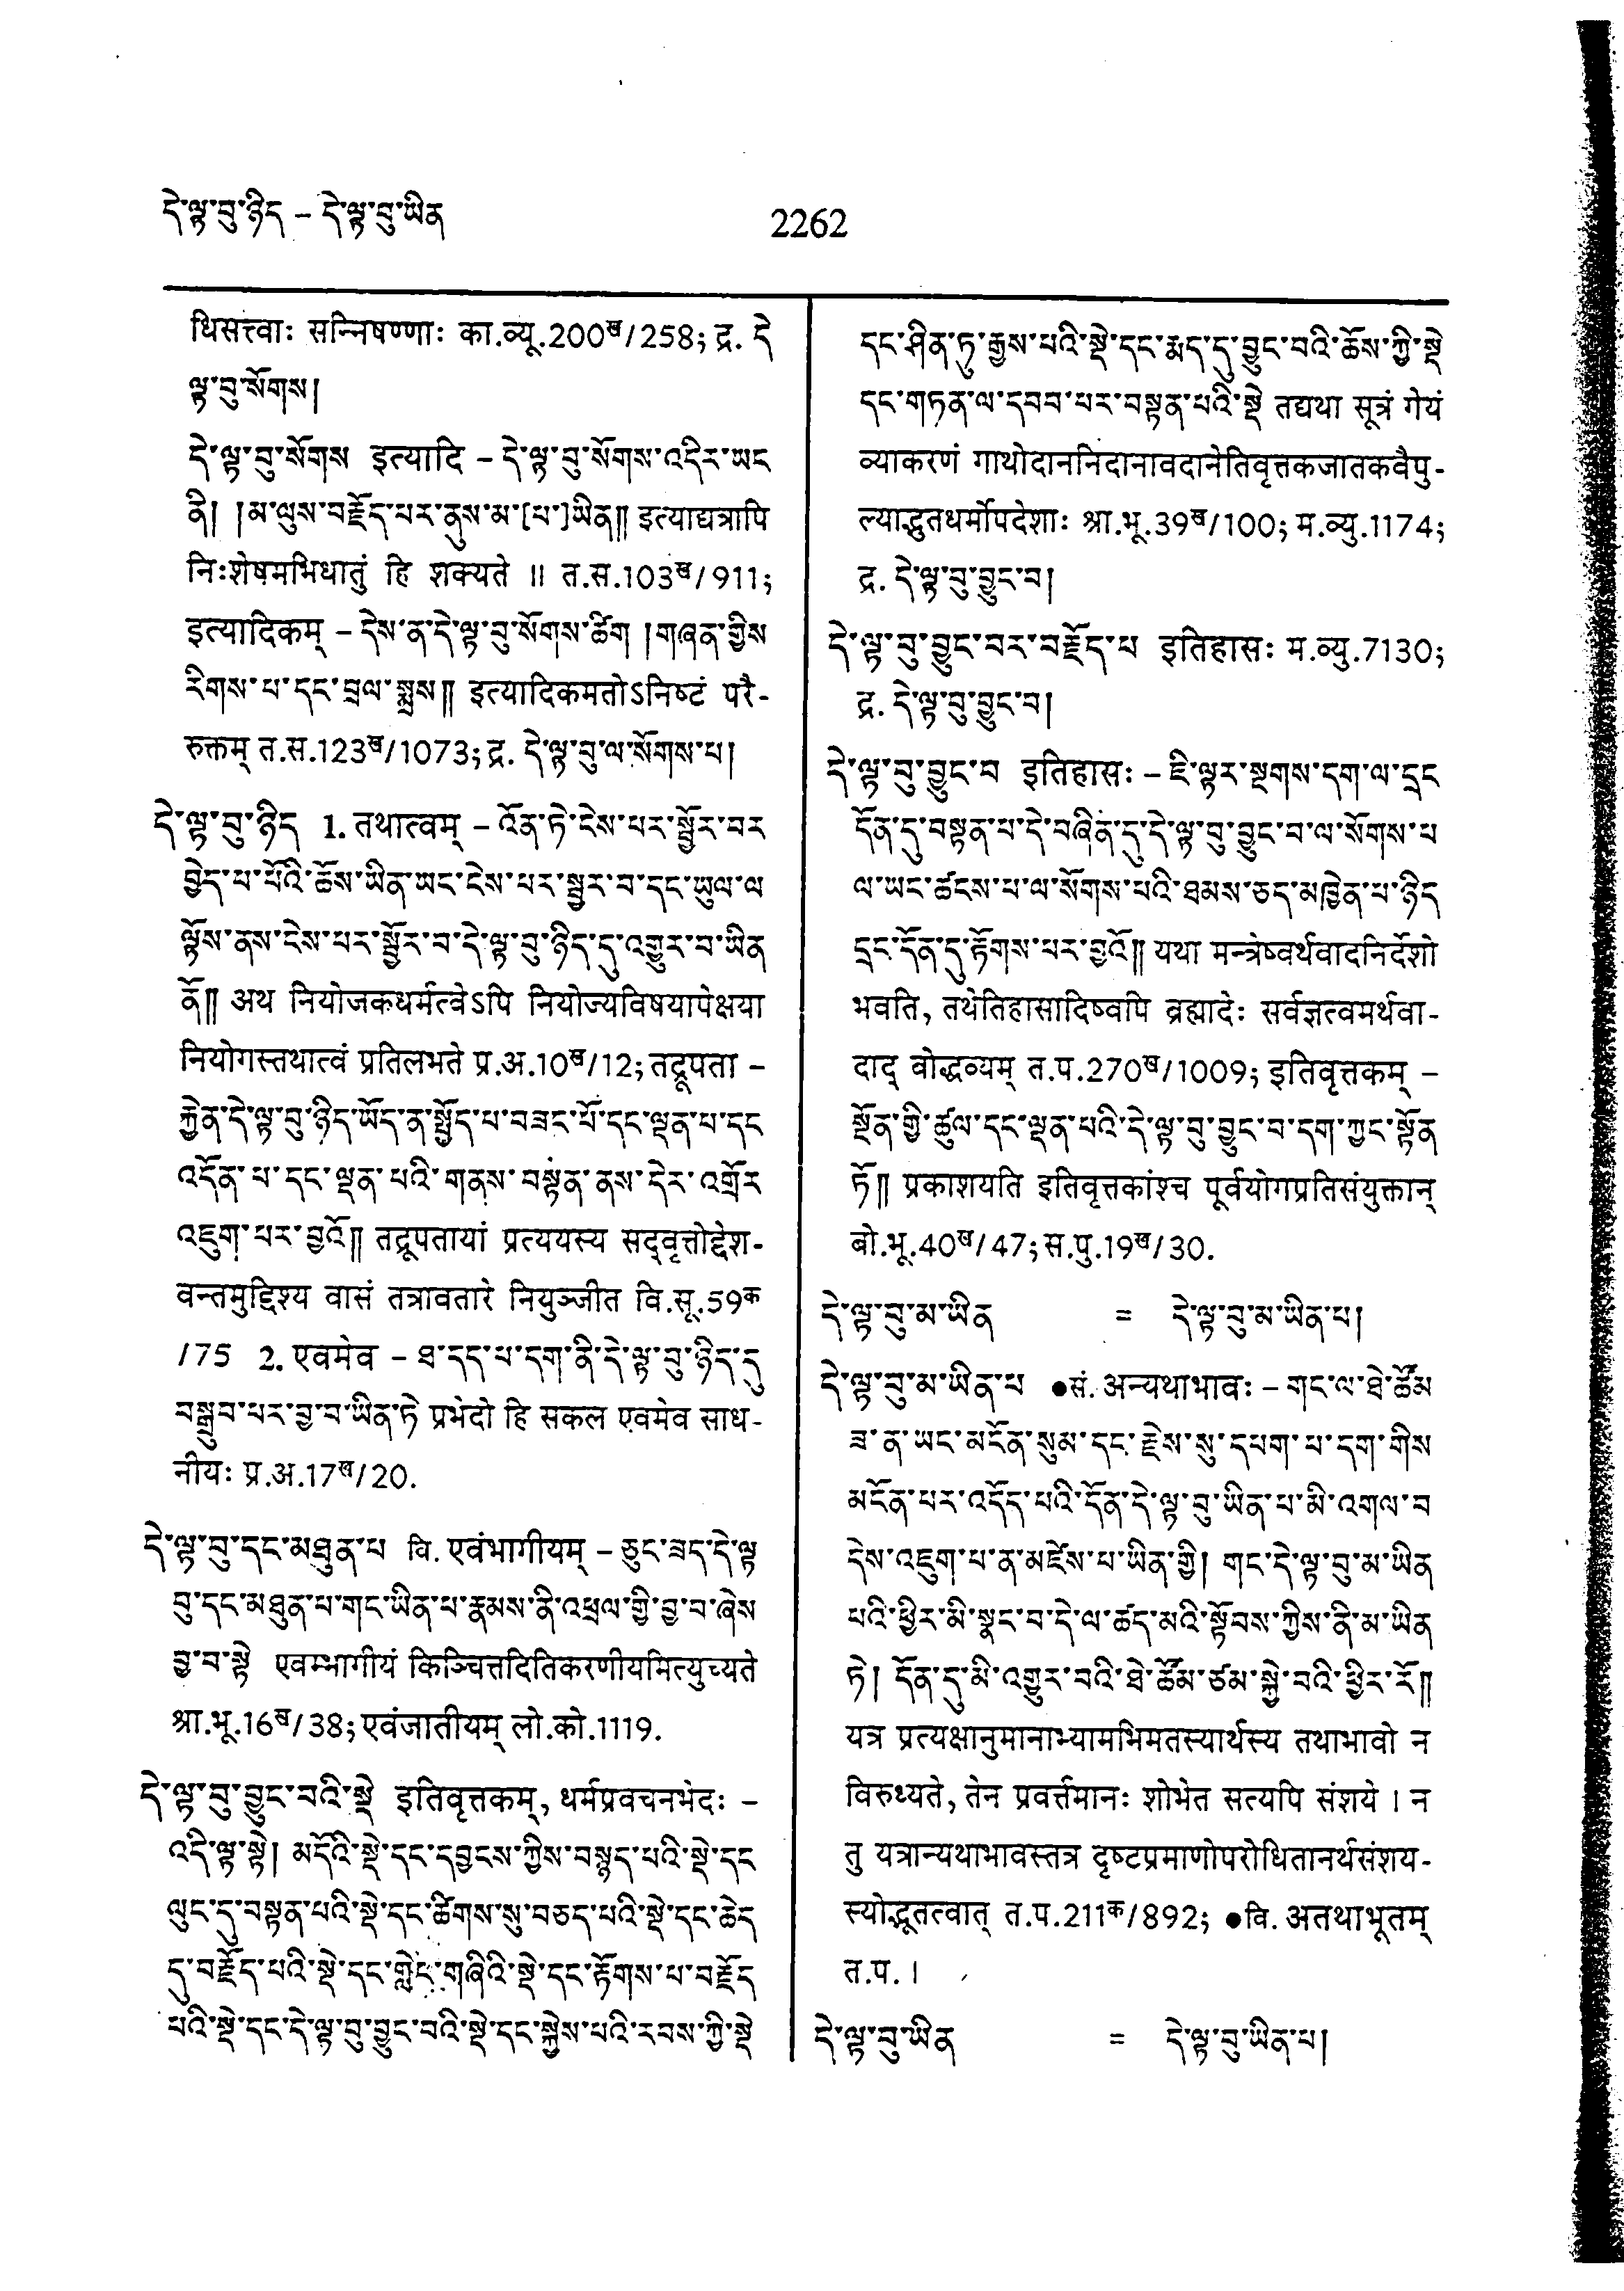 དེ་ལྟ་བུ་ཉིད – དེ་ལྟ་བུ་ཡིན
2262
धिसत्त्वाः सन्निषण्णाः का.व्यू.200ख/258; द्र. དེ
ལྟ་བུ་སོགས།
དེ་ལྟ་བུ་སོགས इत्यादि – དེ་ལྟ་བུ་སོགས་འདིར་ཡང
ནི། །མ་ལུས་བརྗོད་པར་ནུས་མ་[པ་]ཡིན༎ इत्याद्यत्रापि
निःशेषमभिधातुं हि शक्यते ॥ त.स.103ख/911;
इत्यादिकम् – དེས་ན་དེ་ལྟ་བུ་སོགས་ཚིག །གཞན་གྱིས
རིགས་པ་དང་བྲལ་སྨྲས༎ इत्यादिकमतोऽनिष्टं परै-
रुक्तम् त.स.123ख/1073; द्र. དེ་ལྟ་བུ་ལ་སོགས་པ།
དེ་ལྟ་བུ་ཉིད 1. तथात्वम् – འོན་ཏེ་ངེས་པར་སྦྱོར་བར
བྱེད་པ་པོའི་ཆོས་ཡིན་ཡང་ངེས་པར་སྦྱར་བ་དང་ཡུལ་ལ
ལྟོས་ནས་ངེས་པར་སྦྱོར་བ་དེ་ལྟ་བུ་ཉིད་དུ་འགྱུར་བ་ཡིན
ནོ༎ अथ नियोजकधर्मत्वेऽपि नियोज्यविषयापेक्षया
नियोगस्तथात्वं प्रतिलभते प्र.अ.10ख/12; तद्रूपता –
རྐྱེན་དེ་ལྟ་བུ་ཉིད་ཡོད་ན་སྤྱོད་པ་བཟང་པོ་དང་ལྡན་པ་དང
འདོན་པ་དང་ལྡན་པའི་གནས་བསྟན་ནས་དེར་འགྲོར
འཇུག་པར་བྱའོ༎ तद्रूपतायां प्रत्ययस्य सद्वृत्तोद्देश-
वन्तमुद्दिश्य वासं तत्रावतारे नियुञ्जीत वि.सू.59क
/75 2. एवमेव – ཐ་དད་པ་དག་ནི་དེ་ལྟ་བུ་ཉིད་དུ
བསྒྲུབ་པར་བྱ་བ་ཡིན་ཏེ प्रभेदो हि सकल एवमेव साध-
नीयः प्र.अ.17ख/20.
དེ་ལྟ་བུ་དང་མཐུན་པ वि. एवंभागीयम् – ཅུང་ཟད་དེ་ལྟ
བུ་དང་མཐུན་པ་གང་ཡིན་པ་རྣམས་ནི་འཕྲལ་གྱི་བྱ་བ་ཞེས
བྱ་བ་སྟེ एवम्भागीयं किञ्चित्तदितिकरणीयमित्युच्यते
श्रा.भू.16ख/38; एवंजातीयम् लो.को.1119.
དེ་ལྟ་བུ་བྱུང་བའི་སྡེ इतिवृत्तकम्, धर्मप्रवचनभेदः –
འདི་ལྟ་སྟེ། མདོའི་སྡེ་དང་དབྱངས་ཀྱིས་བསྙད་པའི་སྡེ་དང
ལུང་དུ་བསྟན་པའི་སྡེ་དང་ཚིགས་སུ་བཅད་པའི་སྡེ་དང་ཆེད
དུ་བརྗོད་པའི་སྡེ་དང་གླེང་གཞིའི་སྡེ་དང་རྟོགས་པ་བརྗོད
པའི་སྡེ་དང་དེ་ལྟ་བུ་བྱུང་བའི་སྡེ་དང་སྐྱེས་པའི་རབས་ཀྱི་སྡེ
དང་ཤིན་ཏུ་རྒྱས་པའི་སྡེ་དང་རྨད་དུ་བྱུང་བའི་ཆོས་ཀྱི་སྡེ
དང་གཏན་ལ་དབབ་པར་བསྟན་པའི་སྡེ तद्यथा सूत्रं गेयं
व्याकरणं गाथोदाननिदानावदानेतिवृत्तकजातकवैपु-
ल्याद्भुतधर्मोपदेशाः श्रा.भू.39ख/100; म.व्यु.1174;
द्र. དེ་ལྟ་བུ་བྱུང་བ།
དེ་ལྟ་བུ་བྱུང་བར་བརྗོད་པ इतिहासः म.व्यु.7130;
द्र. དེ་ལྟ་བུ་བྱུང་བ།
དེ་ལྟ་བུ་བྱུང་བ इतिहासः – ཇི་ལྟར་སྔགས་དག་ལ་དྲང
དོན་དུ་བསྟན་པ་དེ་བཞིན་དུ་དེ་ལྟ་བུ་བྱུང་བ་ལ་སོགས་པ
ལ་ཡང་ཚངས་པ་ལ་སོགས་པའི་ཐམས་ཅད་མཁྱེན་པ་ཉིད
དྲང་དོན་དུ་རྟོགས་པར་བྱའོ༎ यथा मन्त्रेष्वर्थवादनिर्देशो
भवति, तथेतिहासादिष्वपि ब्रह्मादेः सर्वज्ञत्वमर्थवा-
दाद् बोद्धव्यम् त.प.270ख/1009; इतिवृत्तकम् –
སྔོན་གྱི་ཚུལ་དང་ལྡན་པའི་དེ་ལྟ་བུ་བྱུང་བ་དག་ཀྱང་སྟོན
ཏོ༎ प्रकाशयति इतिवृत्तकांश्च पूर्वयोगप्रतिसंयुक्तान्
बो.भू.40ख/47; स.पु.19ख/30.
དེ་ལྟ་བུ་མ་ཡིན = དེ་ལྟ་བུ་མ་ཡིན་པ།
དེ་ལྟ་བུ་མ་ཡིན་པ ●सं. अन्यथाभावः – གང་ལ་ཐེ་ཚོམ
ཟ་ན་ཡང་མངོན་སུམ་དང་རྗེས་སུ་དཔག་པ་དག་གིས
མངོན་པར་འདོད་པའི་དོན་དེ་ལྟ་བུ་ཡིན་པ་མི་འགལ་བ
དེས་འཇུག་པ་ན་མཛེས་པ་ཡིན་གྱི། གང་དེ་ལྟ་བུ་མ་ཡིན
པའི་ཕྱིར་མི་སྣང་བ་དེ་ལ་ཚད་མའི་སྟོབས་ཀྱིས་ནི་མ་ཡིན
ཏེ། དོན་དུ་མི་འགྱུར་བའི་ཐེ་ཚོམ་ཙམ་སྐྱེ་བའི་ཕྱིར་རོ༎
यत्र प्रत्यक्षानुमानाभ्यामभिमतस्यार्थस्य तथाभावो न
विरुध्यते, तेन प्रवर्त्तमानः शोभेत सत्यपि संशये । न
तु यत्रान्यथाभावस्तत्र दृष्टप्रमाणोपरोधितानर्थसंशय-
स्योद्भूतत्वात् त.प.211क/892; ●वि. अतथाभूतम्
त.प. ।
དེ་ལྟ་བུ་ཡིན = དེ་ལྟ་བུ་ཡིན་པ།